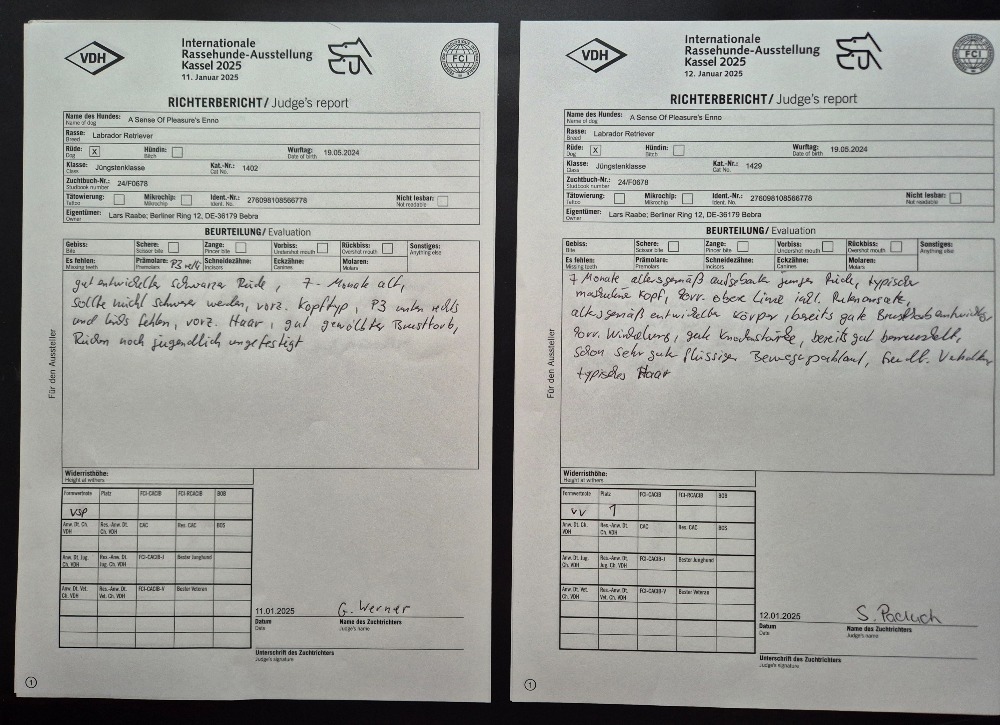 VDH
Internationale
Rassehunde-Ausstellung
Kassel 2025
11. Januar 2025
FCI
RICHTERBERICHT/ Judge's report
Name des Hundes: A Sense Of Pleasure's Enno
Name of dog
Rasse: Labrador Retriever
Breed
Rüde: X Hündin: Wurftag: 19.05.2024
Dog Bitch Date of birth
Klasse: Jüngstenklasse Kat.-Nr.: 1402
Class Cat No.
Zuchtbuch-Nr.: 24/F0678
Studbook number
Tätowierung: Mikrochip: Ident.-Nr.: 276098108566778 Nicht lesbar:
Tattoo Microchip Ident. No. Not readable
Eigentümer: Lars Raabe; Berliner Ring 12, DE-36179 Bebra
Owner
BEURTEILUNG/ Evaluation
Gebiss: Schere: Zange: Vorbiss: Rückbiss: Sonstiges:
Bite Scissor bite Pincer bite Undershot mouth Overshot mouth Anything else
Es fehlen: Prämolare: P3 Schneidezähne: Eckzähne: Molaren:
Missing teeth Premolars Incisors Canines Molars
gut entwickelter schwarzer Rüde, 7-Monate alt,
sollte nicht schwerer werden, vorz. Kopftyp, P3 unten rechts
und links fehlen, vorz. Haar, gut gewölbter Brustkorb,
Rücken noch jugendlich ungefestigt
Für den Aussteller
Widerristhöhe:
Height at withers
Formwertnote Platz FCI-CACIB FCI-RCACIB BOB
vsp
Anw. Dt. Ch. VDH Res.-Anw. Dt. Ch. VDH CAC Res. CAC BOS
Anw. Dt. Jug. Ch. VDH Res.-Anw. Dt. Jug. Ch. VDH FCI-CACIB-J Bester Junghund
Anw. Dt. Vet. Ch. VDH Res.-Anw. Dt. Vet. Ch. VDH FCI-CACIB-V Bester Veteran
11.01.2025 G. Werner
Datum Name des Zuchtrichters
Date Judge's name
Unterschrift des Zuchtrichters
Judge's signature
1
VDH
Internationale
Rassehunde-Ausstellung
Kassel 2025
12. Januar 2025
FCI
RICHTERBERICHT/ Judge's report
Name des Hundes: A Sense Of Pleasure's Enno
Name of dog
Rasse: Labrador Retriever
Breed
Rüde: X Hündin: Wurftag: 19.05.2024
Dog Bitch Date of birth
Klasse: Jüngstenklasse Kat.-Nr.: 1429
Class Cat No.
Zuchtbuch-Nr.: 24/F0678
Studbook number
Tätowierung: Mikrochip: Ident.-Nr.: 276098108566778 Nicht lesbar:
Tattoo Microchip Ident. No. Not readable
Eigentümer: Lars Raabe; Berliner Ring 12, DE-36179 Bebra
Owner
BEURTEILUNG/ Evaluation
Gebiss: Schere: Zange: Vorbiss: Rückbiss: Sonstiges:
Bite Scissor bite Pincer bite Undershot mouth Overshot mouth Anything else
Es fehlen: Prämolare: Schneidezähne: Eckzähne: Molaren:
Missing teeth Premolars Incisors Canines Molars
7 Monate altersgemäß aufgebauter junger Rüde, typischer
maskuliner Kopf, korr. obere Linie inkl. Rutenansatz,
altersgemäß entwickelter Körper, bereits gute Brustkorbentwicklung
korr. Winkelung, gute Knochenstärke, bereits gut bemuskelt,
schon sehr gute flüssiger Bewegungsablauf, freundl. Verhalten
typisches Haar
Für den Aussteller
Widerristhöhe:
Height at withers
Formwertnote Platz FCI-CACIB FCI-RCACIB BOB
vv 1
Anw. Dt. Ch. VDH Res.-Anw. Dt. Ch. VDH CAC Res. CAC BOS
Anw. Dt. Jug. Ch. VDH Res.-Anw. Dt. Jug. Ch. VDH FCI-CACIB-J Bester Junghund
Anw. Dt. Vet. Ch. VDH Res.-Anw. Dt. Vet. Ch. VDH FCI-CACIB-V Bester Veteran
12.01.2025 S.
Datum Name des Zuchtrichters
Date Judge's name
Unterschrift des Zuchtrichters
Judge's signature
1